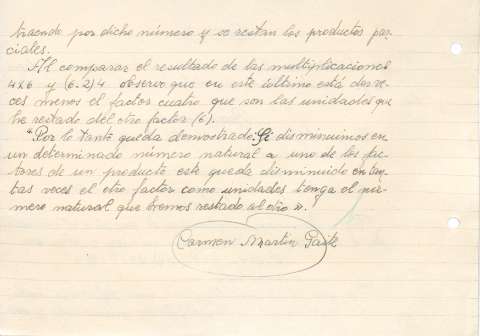 traendo por dicho número y se restan los productos par-
ciales.
Al comparar el resultado de las multiplicaciones
4x6 y (6-2)4 observo que en este último está dos ve-
ces menos el factor cuatro que son las unidades que
he restado del otro factor (6).
"Por lo tanto queda demostrado: Si disminuimos en
un determinado número natural a uno de los fac-
tores de un producto este queda disminuido en tan-
tas veces el otro factor como unidades tenga el nú-
mero natural que hemos restado al otro".
Carmen Martín